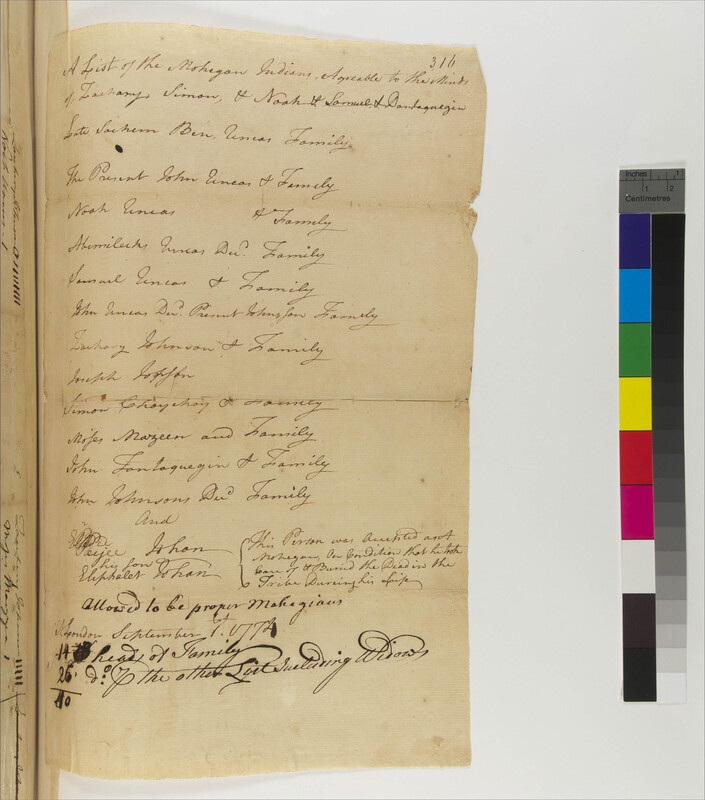 316
A List of the Mohegan Indians, Agreable to the Minds
of Zachary, Simon, & Noah & Samuel & Dantaquegin
Late Sachem Ben, Uncas Family
The Present John Uncas & Femely
Noah Uncas & Family
Abimilecks Uncas Decd. Family
Samuel Uncas & Family
John Uncas Decd. Present Johns son Family
Zachary Johnson & Family
Joseph Jopson
Simon Choychoy & Family
Moses Mazeen and Family
John Tantaquegin & Family
John Johnsons Decd Family
And
Johan
his son
Eliphalet Johan
This Person was Accepted as a
Mohegan, on Condition that he took
Care of & Buried the Dead in the
Tribe Dureing his Life
Allowed to be proper Mohegians
London September 1st. 1774
14 heads of Family
26 do. of the other List Including Widows
40
Inches 1
1 2
Centimetres